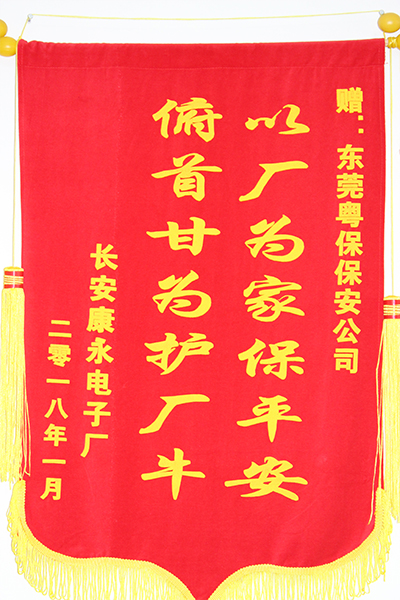 赠：东莞粤保保安公司
以厂为家保平安
俯首甘为护厂牛
长安康永电子厂
二零一八年一月